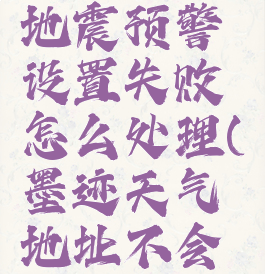 地震预警
设置失败
怎么处理(
墨迹天气
地址不会